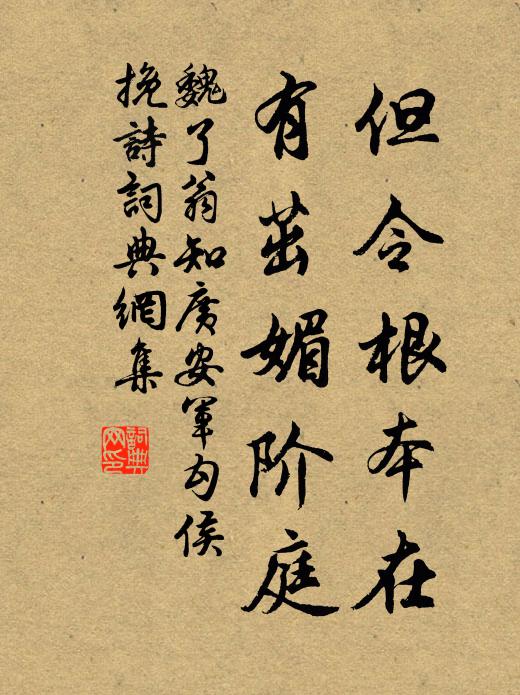 但令根本在
有茁媚阶庭
魏了翁知广安军勾侯
挽詩詞典網集
詞典
网印